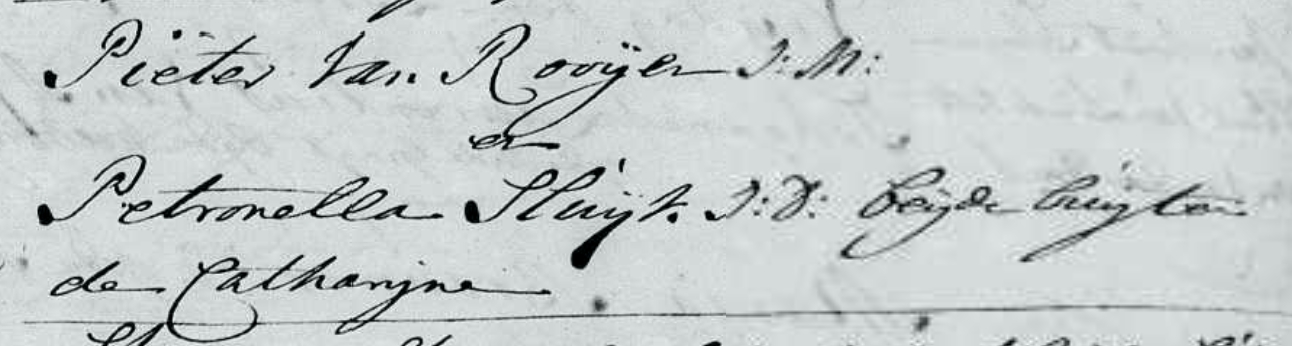 Pieter Van Rooÿen J: M:
en
Petronella Sluÿk J: D: beÿde buÿten
de Catharÿne